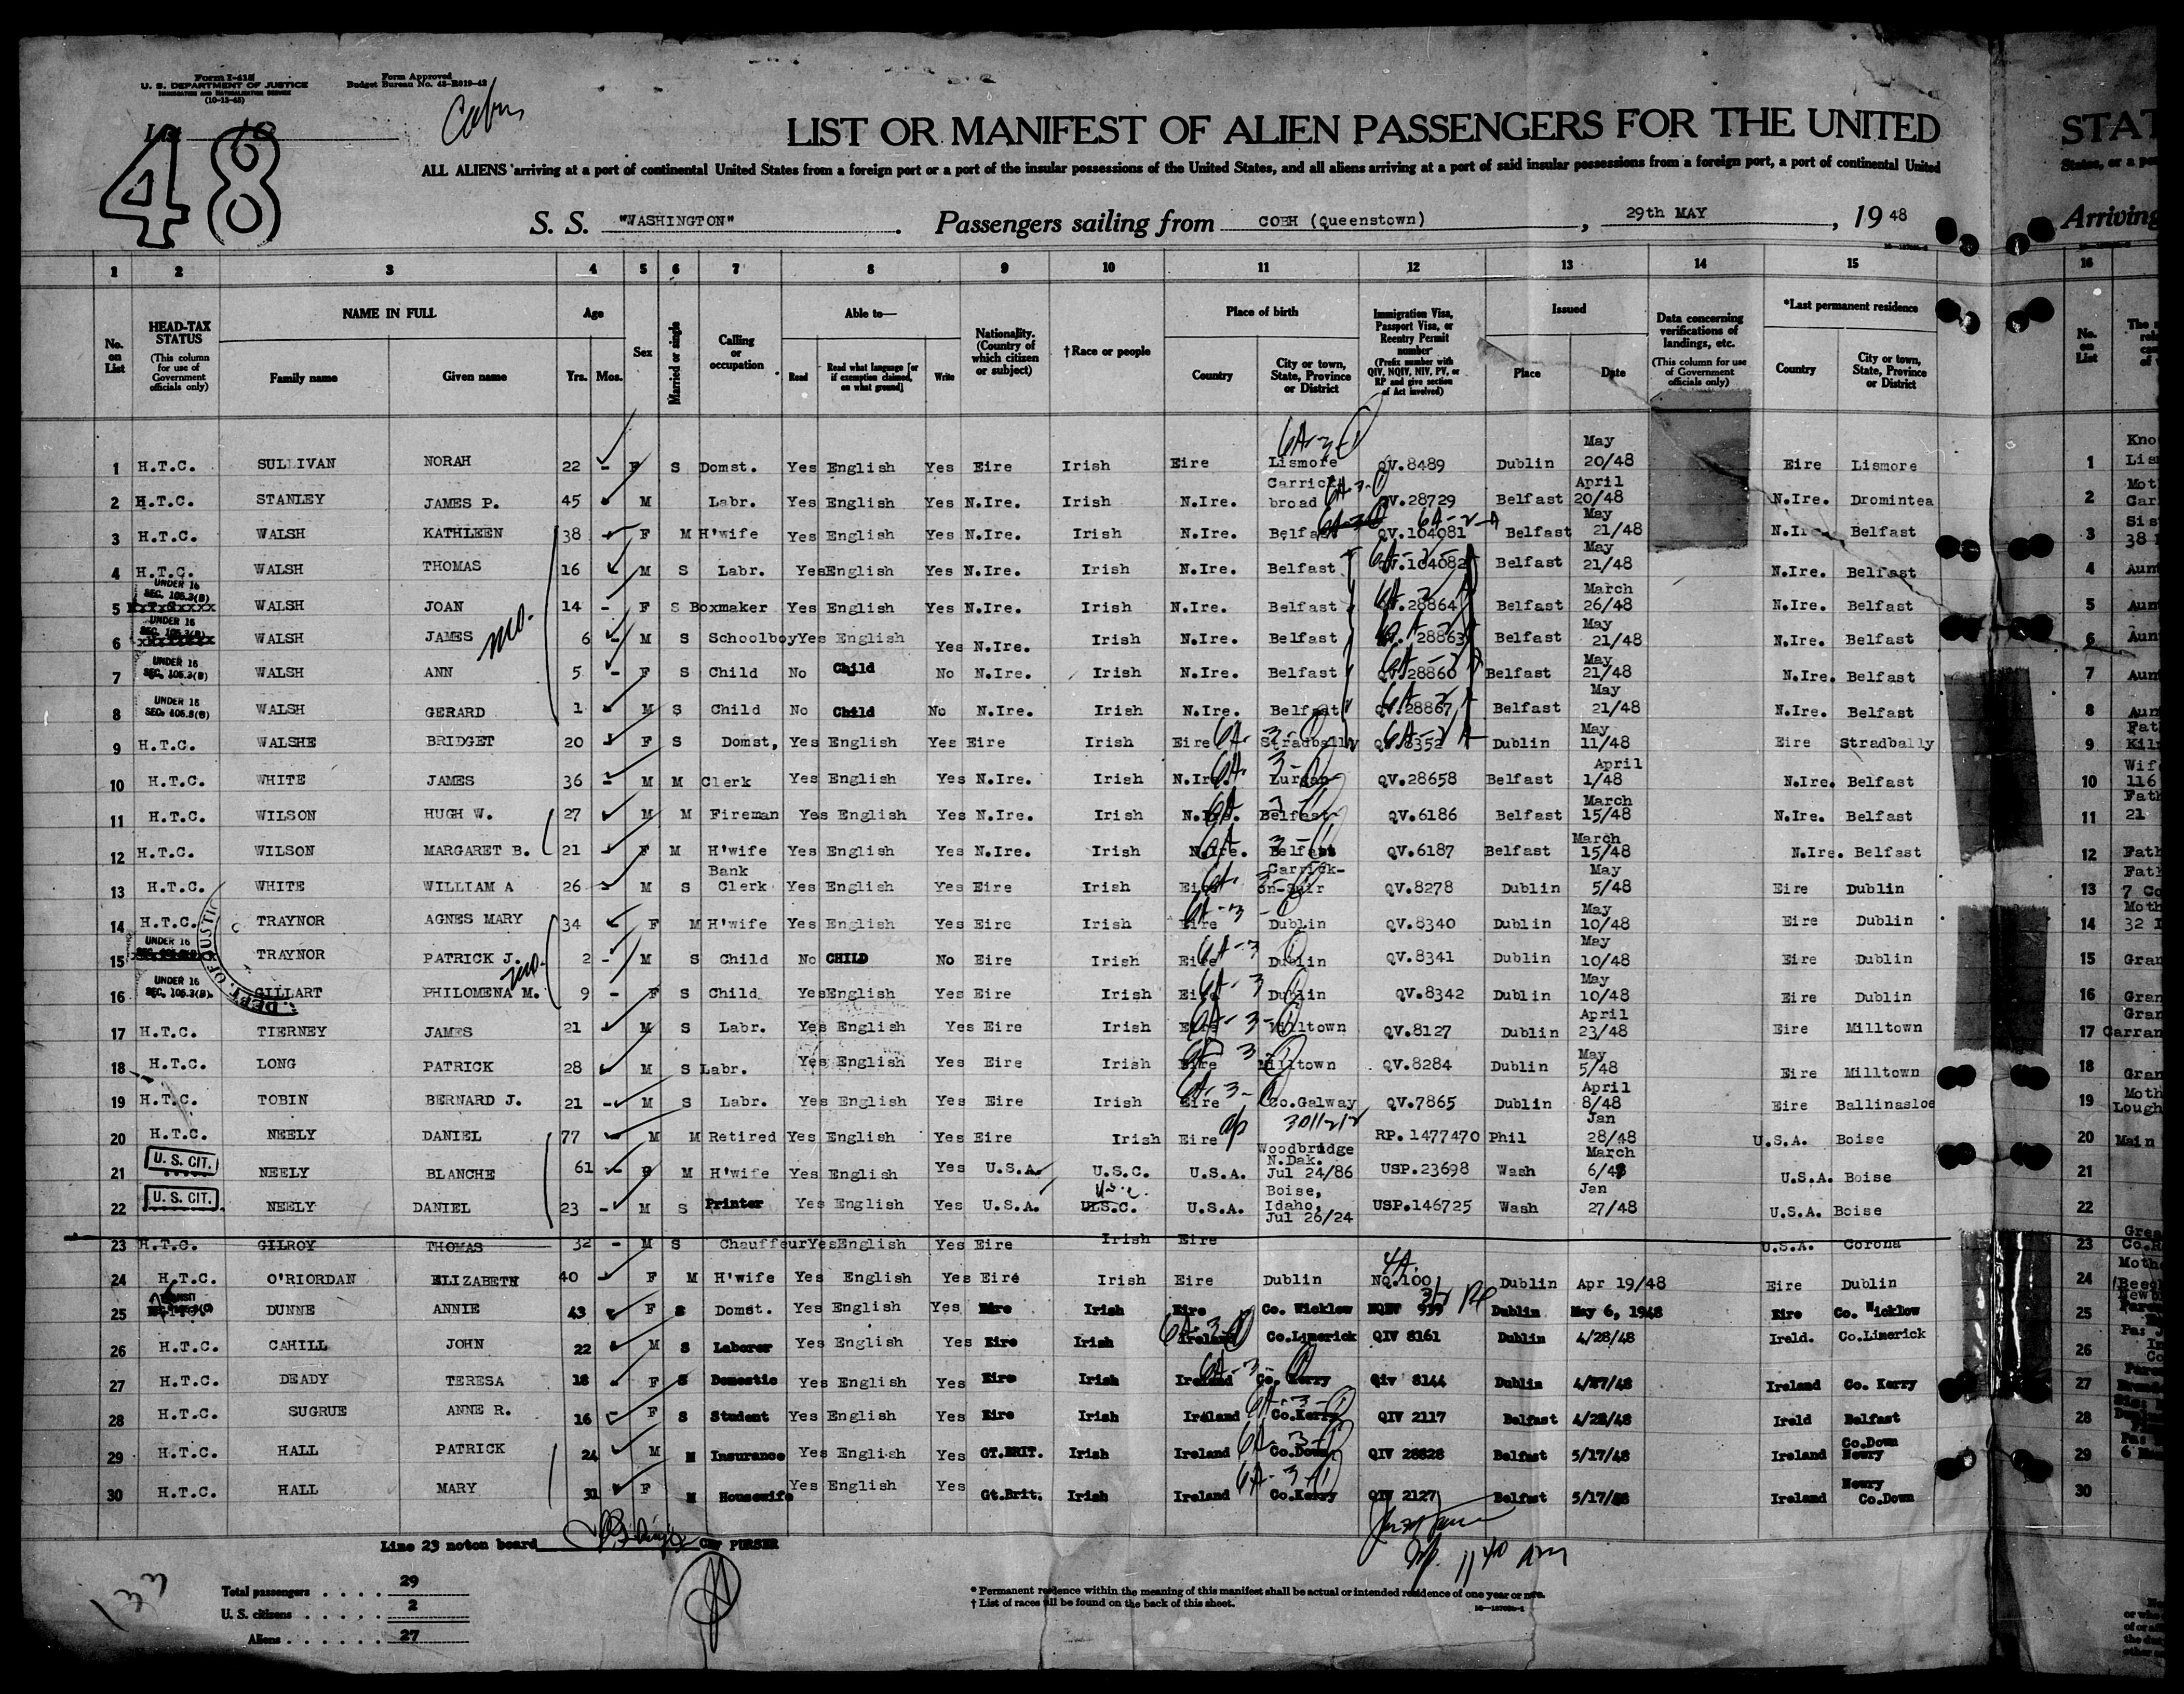 Form I-415
U. S. DEPARTMENT OF JUSTICE
IMMIGRATION AND NATURALIZATION SERVICE
(10-15-45)
Form Approved
Budget Bureau No. 43-R019-42
48
LIST OR MANIFEST OF ALIEN PASSENGERS FOR THE UNITED
STAT
ALL ALIENS arriving at a port of continental United States from a foreign port or a port of the insular possessions of the United States, and all aliens arriving at a port of said insular possessions from a foreign port, a port of continental United
States, or a po
S. S. "WASHINGTON". Passengers sailing from COBH (Queenstown), 29th MAY, 19 48
Arriving
1 2 3 4 5 6 7 8 9 10 11 12 13 14 15 16
No. on List
HEAD-TAX STATUS (This column for use of Government officials only)
NAME IN FULL
Family name Given name
Age
Yrs. Mos.
Sex
Married or single
Calling or occupation
Able to—
Read Read what language [or if exemption claimed, on what ground] Write
Nationality. (Country of which citizen or subject)
†Race or people
Place of birth
Country City or town, State, Province or District
Immigration Visa, Passport Visa, or Reentry Permit number (Prefix number with QIV, NQIV, NIV, PV, or RP and give section of Act involved)
Issued
Place Date
Data concerning verifications of landings, etc. (This column for use of Government officials only)
*Last permanent residence
Country City or town, State, Province or District
No. on List
1 H.T.C. SULLIVAN NORAH 22 - F S Domst. Yes English Yes Eire Irish Eire Lismore QV.8489 Dublin May 20/48 Eire Lismore 1
2 H.T.C. STANLEY JAMES P. 45 M Labr. Yes English Yes N.Ire. Irish N.Ire. Carrick broad QV.28729 Belfast April 20/48 N.Ire. Dromintea 2
3 H.T.C. WALSH KATHLEEN 38 F M H'wife Yes English Yes N.Ire. Irish N.Ire. Belfast QV.104081 Belfast May 21/48 N.Ire. Belfast 3
4 H.T.C. WALSH THOMAS 16 M S Labr. Yes English Yes N.Ire. Irish N.Ire. Belfast QV.104082 Belfast May 21/48 N.Ire. Belfast 4
5 UNDER 16 SEC. 105.3(B) WALSH JOAN 14 - F S Boxmaker Yes English Yes N.Ire. Irish N.Ire. Belfast QV.28864 Belfast March 26/48 N.Ire. Belfast 5
6 UNDER 16 SEC. 105.3(B) WALSH JAMES 6 - M S Schoolboy Yes English Yes N.Ire. Irish N.Ire. Belfast QV. 28863 Belfast May 21/48 N.Ire. Belfast 6
7 UNDER 16 SEC. 105.3(B) WALSH ANN 5 - F S Child No Child No N.Ire. Irish N.Ire. Belfast QV.28860 Belfast May 21/48 N.Ire. Belfast 7
8 UNDER 16 SEC. 105.3(B) WALSH GERARD 1 M S Child No Child No N.Ire. Irish N.Ire. Belfast QV.28867 Belfast May 21/48 N.Ire. Belfast 8
9 H.T.C. WALSHE BRIDGET 20 F S Domst, Yes English Yes Eire Irish Eire Stradbally QV.8352 Dublin May 11/48 Eire Stradbally 9
10 H.T.C. WHITE JAMES 36 - M M Clerk Yes English Yes N.Ire. Irish N.Ire. Lurgan QV.28658 Belfast April 1/48 N.Ire. Belfast 10
11 H.T.C. WILSON HUGH W. 27 M M Fireman Yes English Yes N.Ire. Irish N.Ire. Belfast QV.6186 Belfast March 15/48 N.Ire. Belfast 11
12 H.T.C. WILSON MARGARET B. 21 F M H'wife Yes English Yes N.Ire. Irish N.Ire. Belfast QV.6187 Belfast March 15/48 N.Ire. Belfast 12
13 H.T.C. WHITE WILLIAM A 26 M S Bank Clerk Yes English Yes Eire Irish Eire Carrick-on-Suir QV.8278 Dublin May 5/48 Eire Dublin 13
14 H.T.C. TRAYNOR AGNES MARY 34 F M H'wife Yes English Yes Eire Irish Eire Dublin QV.8340 Dublin May 10/48 Eire Dublin 14
15 UNDER 16 TRAYNOR PATRICK J. 2 - M S Child No CHILD No Eire Irish Eire Dublin QV.8341 Dublin May 10/48 Eire Dublin 15
16 UNDER 16 SEC. 105.3(B). GILLART PHILOMENA M. 9 - F S Child Yes English Yes Eire Irish Eire Dublin QV.8342 Dublin May 10/48 Eire Dublin 16
17 H.T.C. TIERNEY JAMES 21 M S Labr. Yes English Yes Eire Irish Eire Milltown QV.8127 Dublin April 23/48 Eire Milltown 17
18 H.T.C. LONG PATRICK 28 M S Labr. Yes English Yes Eire Irish Eire Milltown QV.8284 Dublin May 5/48 Eire Milltown 18
19 H.T.C. TOBIN BERNARD J. 21 - M S Labr. Yes English Yes Eire Irish Eire Co.Galway QV.7865 Dublin April 8/48 Eire Ballinasloe 19
20 H.T.C. NEELY DANIEL 77 M M Retired Yes English Yes Eire Irish Eire RP. 1477470 Phil Jan 28/48 U.S.A. Boise 20
21 U. S. CIT. NEELY BLANCHE 61 - F M H'wife Yes English Yes U.S.A. U.S.C. U.S.A. Woodbridge N.Dak. Jul 24/86 USP.23698 Wash March 6/48 U.S.A. Boise 21
22 U. S. CIT. NEELY DANIEL 23 - M S Printer Yes English Yes U.S.A. U.S.C. U.S.A. Boise, Idaho, Jul 26/24 USP.146725 Wash Jan 27/48 U.S.A Boise 22
23 H.T.C. GILROY THOMAS 32 - M S Chauffeur Yes English Yes Eire Irish Eire U.S.A. Corona 23
24 H.T.C. O'RIORDAN ELIZABETH 40 F M H'wife Yes English Yes Eire Irish Eire Dublin NQ.100 Dublin Apr 19/48 Eire Dublin 24
25 DUNNE ANNIE 43 F S Domst. Yes English Yes Eire Irish Eire Co. Wicklow NQIV 939 Dublin May 6, 1948 Eire Co. Wicklow 25
26 H.T.C. CAHILL JOHN 22 M S Laborer Yes English Yes Eire Irish Ireland Co.Limerick QIV 8161 Dublin 4/28/48 Ireld. Co.Limerick 26
27 H.T.C. DEADY TERESA 18 F S Domestic Yes English Yes Eire Irish Ireland Co. Kerry Qiv 8144 Dublin 4/27/48 Ireland Co. Kerry 27
28 H.T.C. SUGRUE ANNE R. 16 - F S Student Yes English Yes Eire Irish Ireland Co.Kerry QIV 2117 Belfast 4/28/48 Ireld Belfast 28
29 H.T.C. HALL PATRICK 24 M M Insurance Yes English Yes GT.BRIT. Irish Ireland Co.Down QIV 28828 Belfast 5/17/48 Ireland Co.Down Newry 29
30 H.T.C. HALL MARY 31 F M Housewife Yes English Yes Gt.Brit. Irish Ireland Co.Kerry QIV 2127 Belfast 5/17/48 Ireland Newry Co.Down 30
Line 23 not on board PURSER
11 40 am
Total passengers . . . . 29
U. S. citizens . . . . . 2
Aliens . . . . . . 27
* Permanent residence within the meaning of this manifest shall be actual or intended residence of one year or more.
† List of races will be found on the back of this sheet.